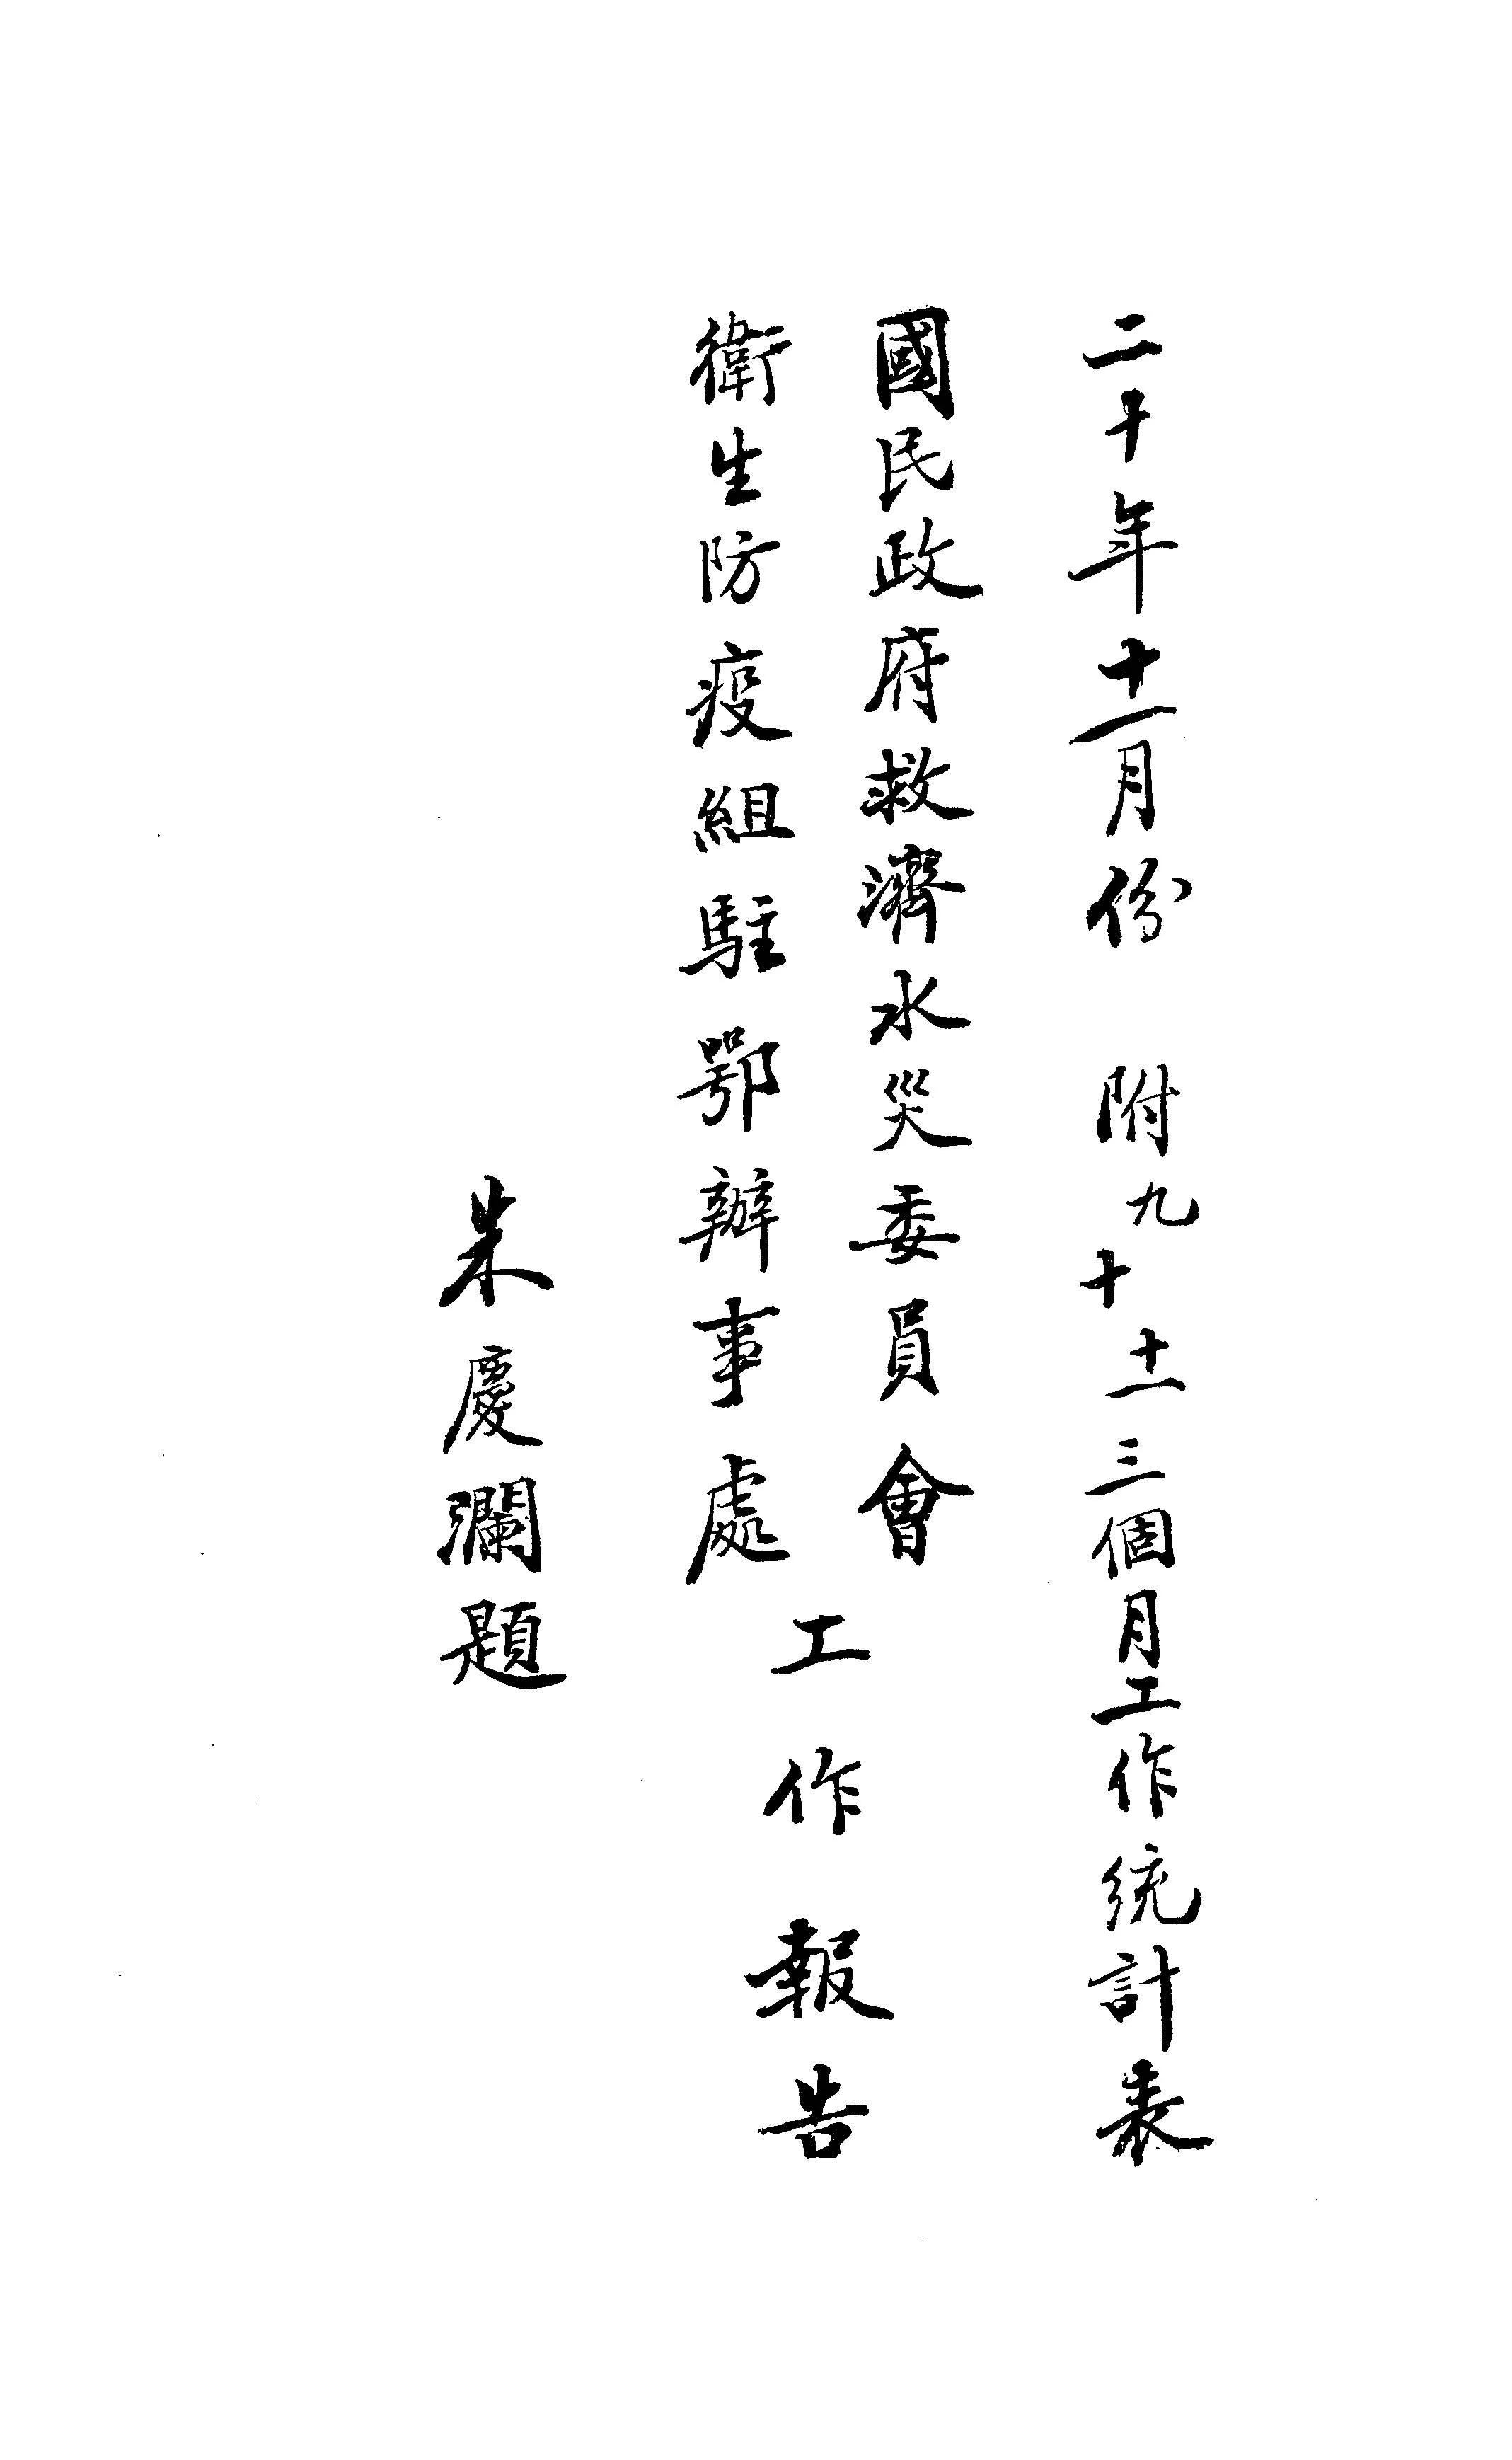 二十年十一月份　附九十十一三個月工作統計表
國民政府救濟水災委員會
衛生防疫組駐鄂辦事處
工作報告
朱慶瀾題